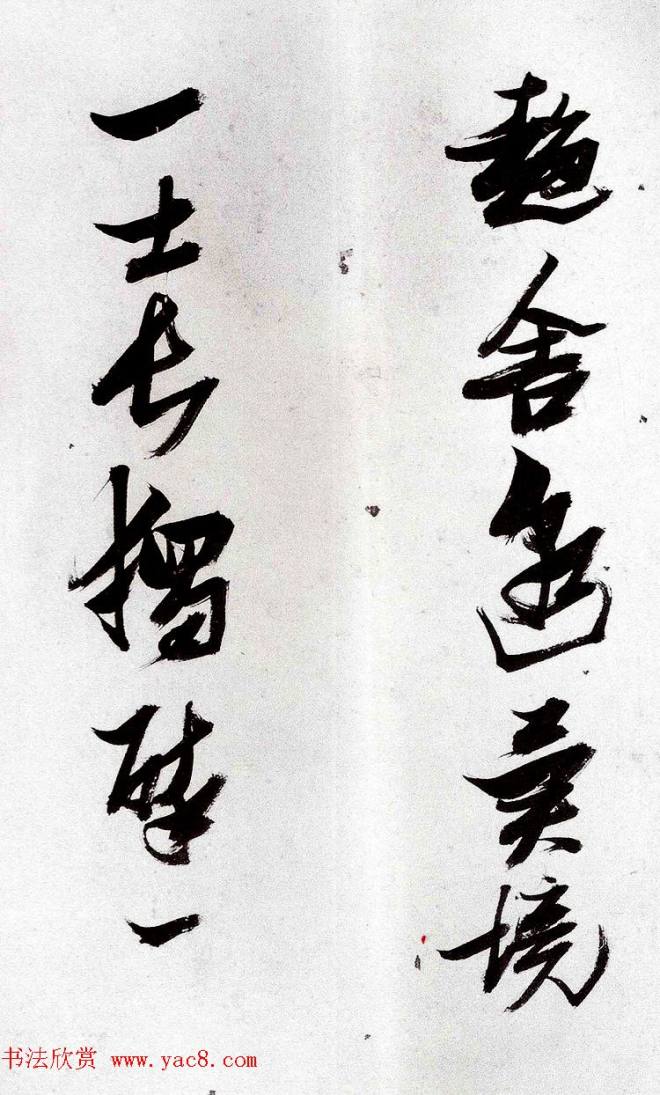 趣舍邈異境
一士長獨醉一
书法欣赏 www.yac8.com